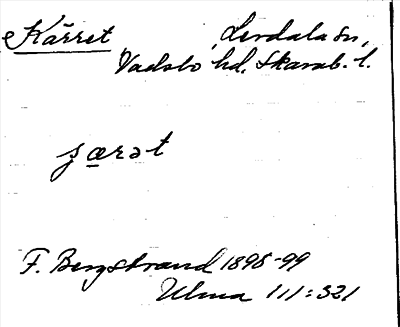 Kärret, Lerdala sn,
Vadsbo hd. Skarab. l.
ʂærət
F. Bergstrand 1898-99
Ulma 111:321